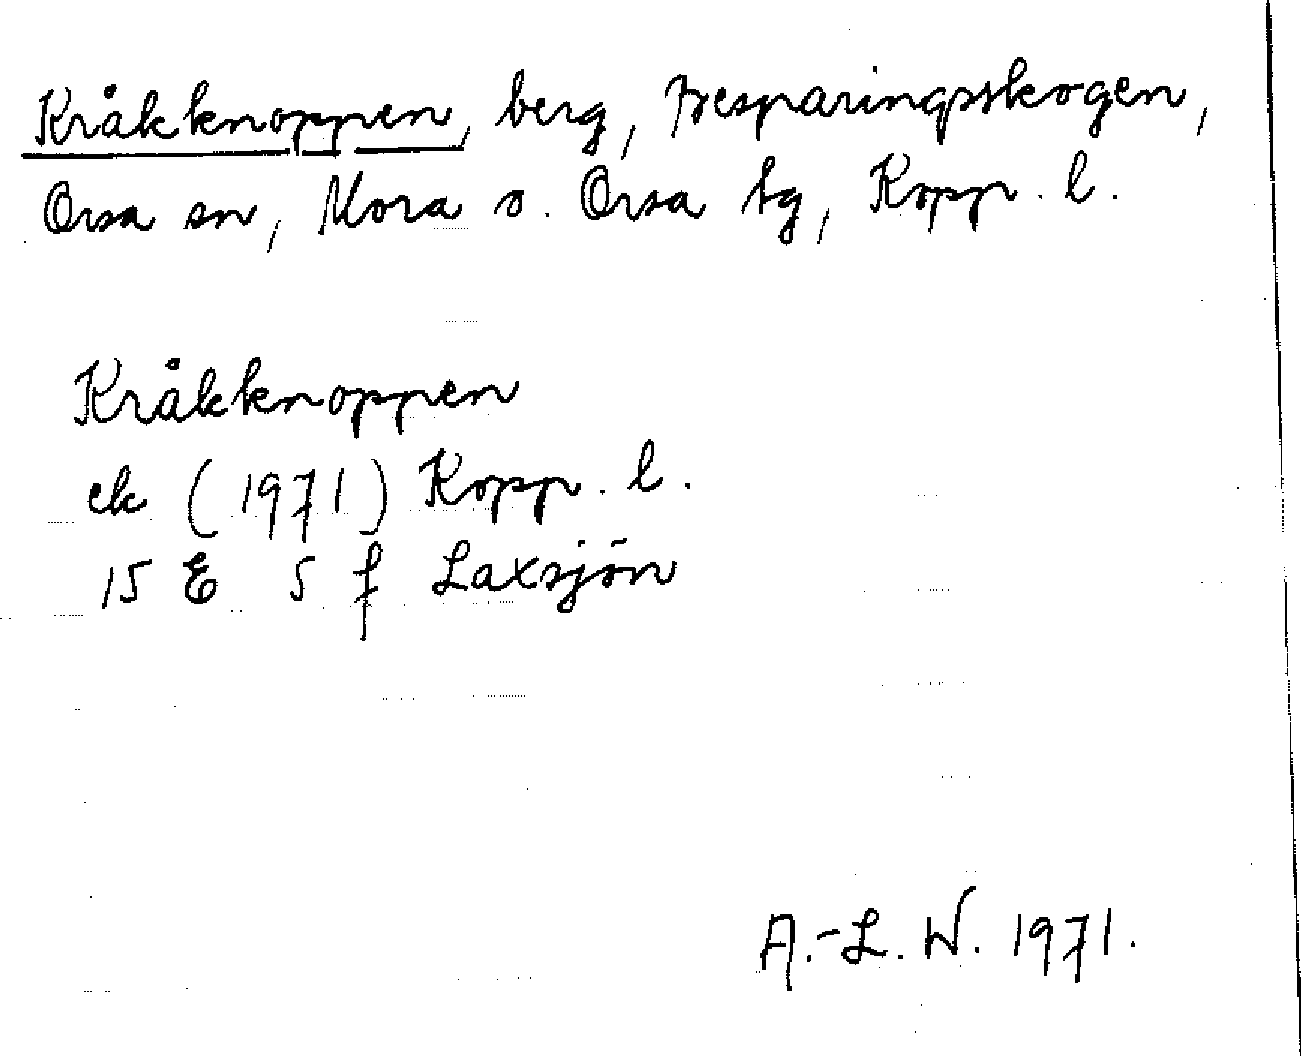 Kråkknoppen, berg, Besparingsskogen,
Orsa sn, Mora o. Orsa tg, Kopp. l.
Kråkknoppen
ek (1971) Kopp. l.
15 E 5 f Laxsjön
A.-L. W. 1971.